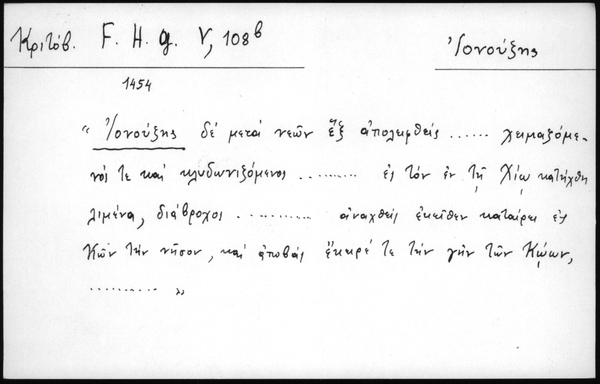 Κριτόβ. F. H. g. V, 108β
Ἰονούξης
1454
“ Ἰονούξης δέ μετά νεῶν ἕξ ἀπολειφθείς ...... χειμαζόμε-
νός τε καί κλυδωνιζόμενος .......... ἐς τόν ἐν τῇ Χίῳ κατήχθη
λιμένα, διάβροχος ............ ἀναχθείς ἐκεῖθεν καταίρει ἐς
Κῶν τήν νῆσον, καί ἀποβάς ἔκειρέ τε τήν γῆν τῶν Κῴων,
.......... ”